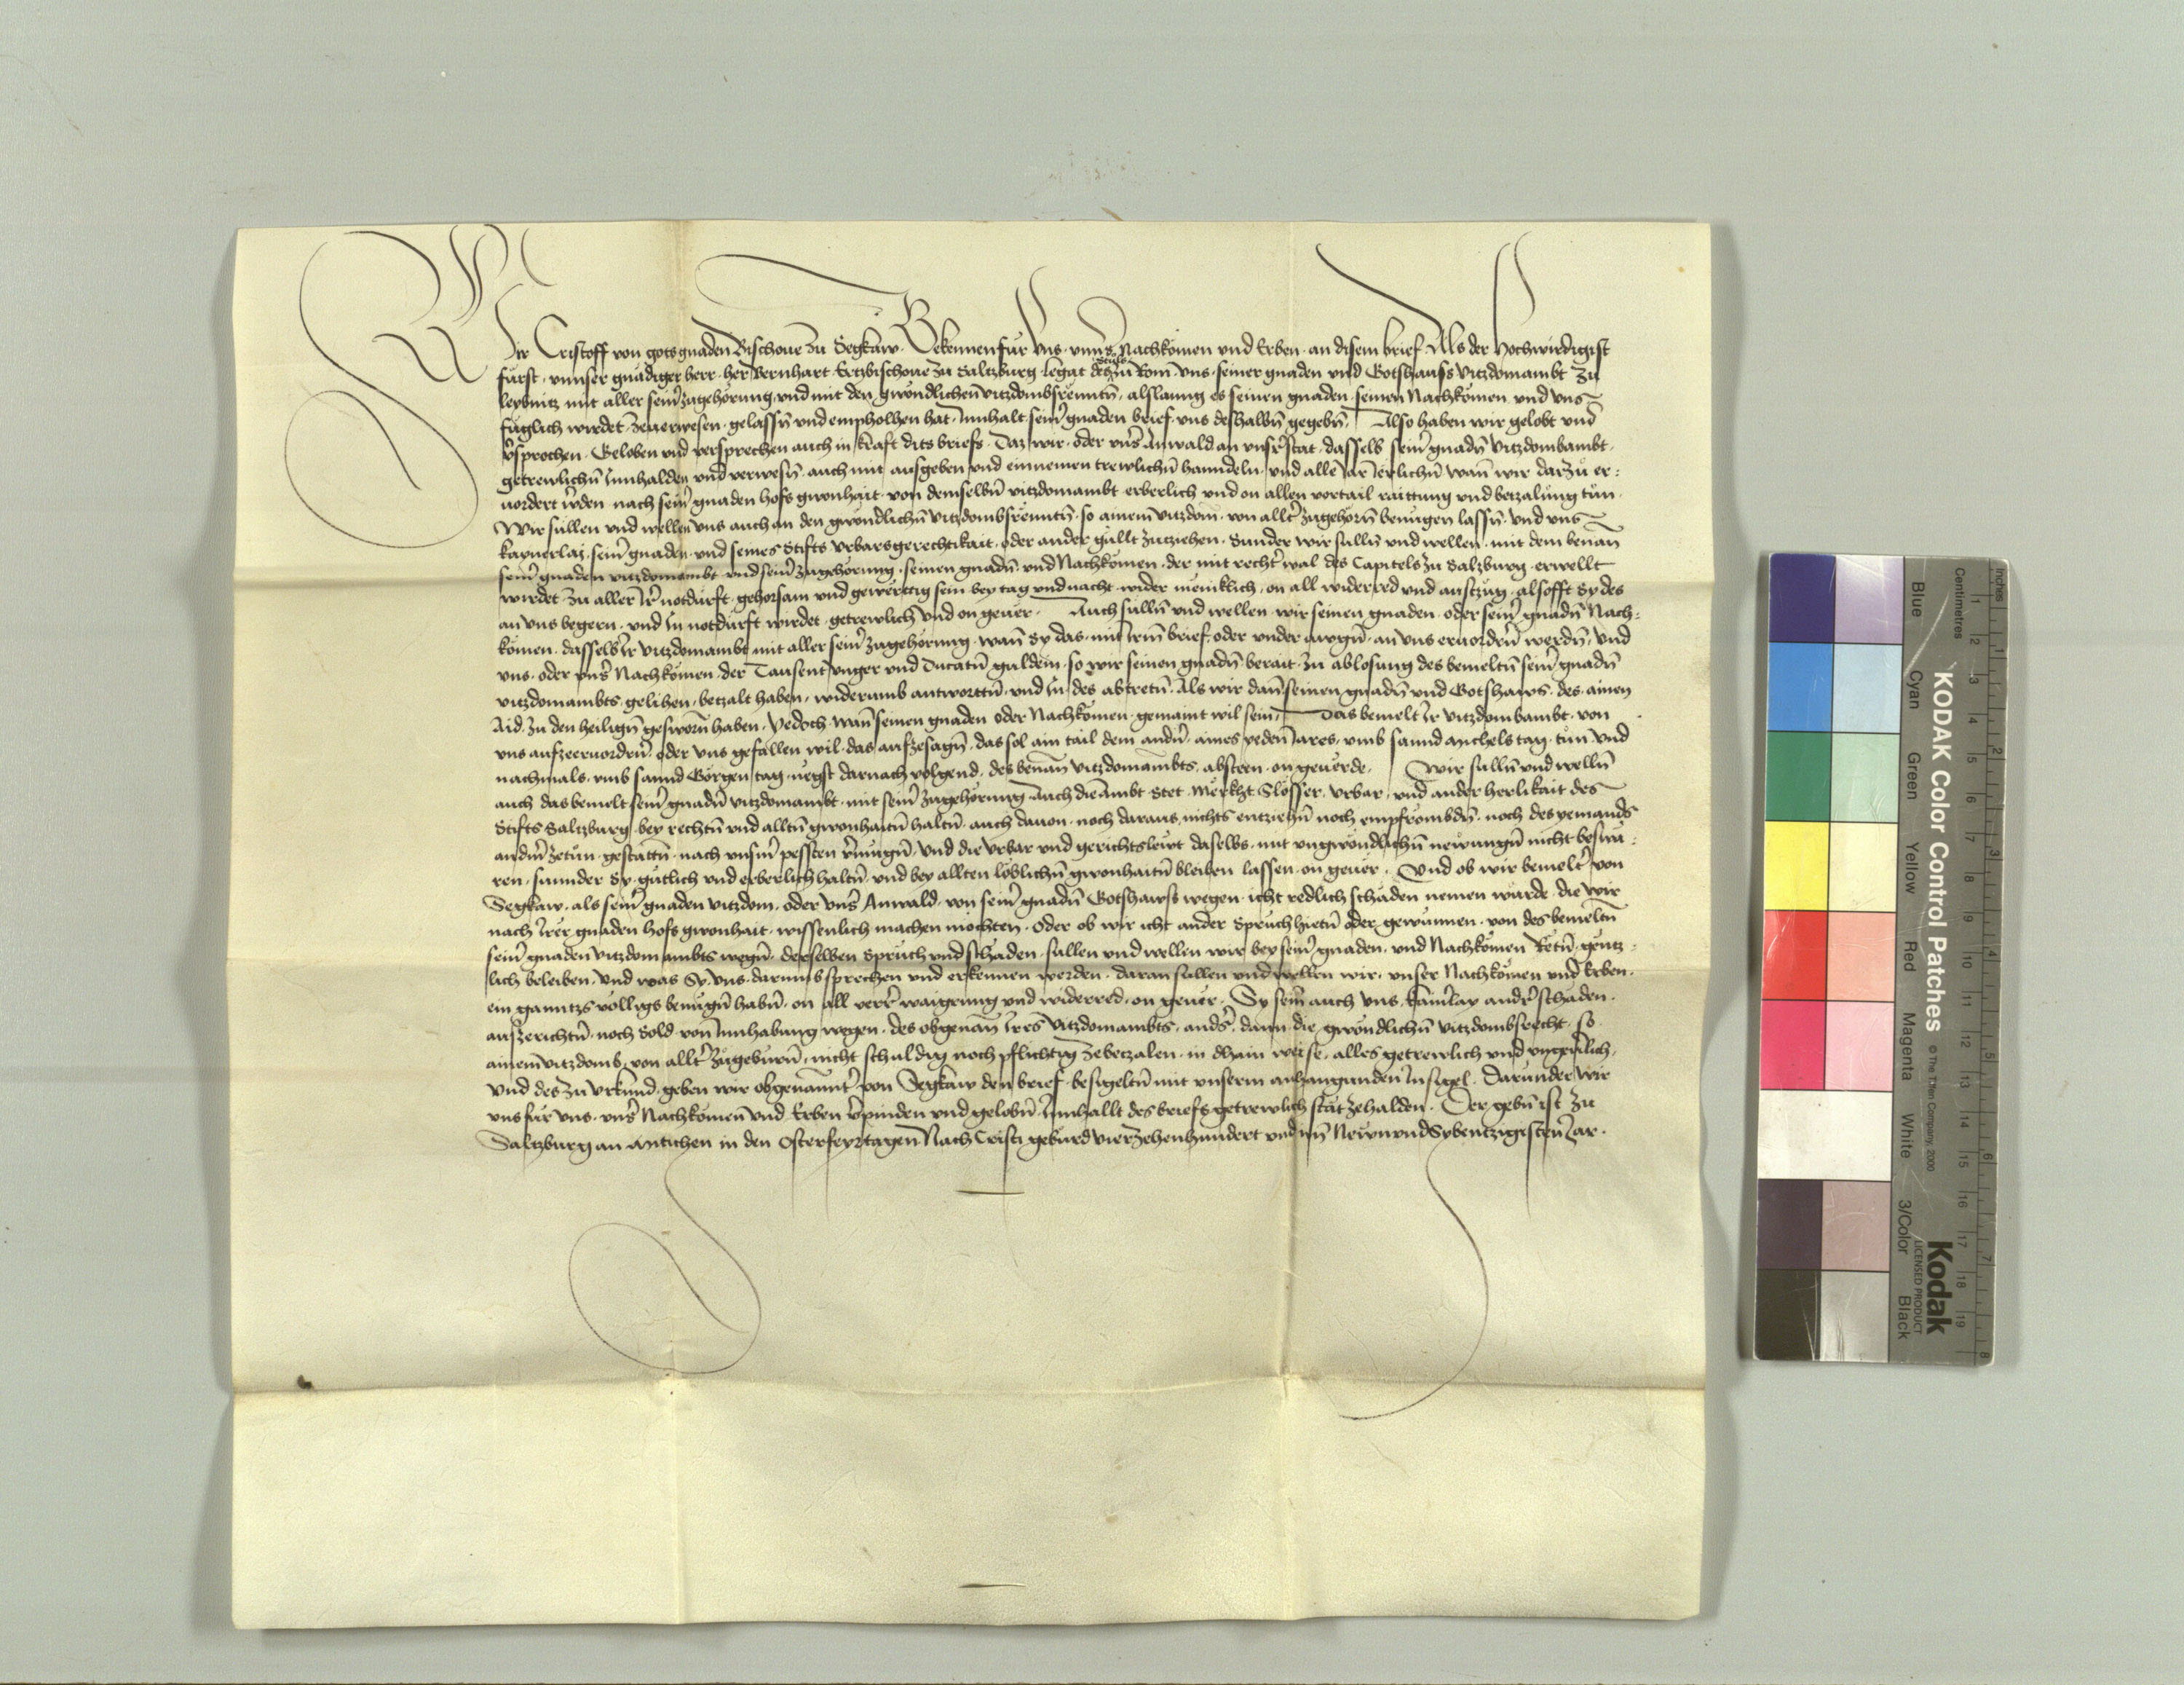 Wir Cristoff von gotsgnaden Bischoue zu Segkaw. Bekennen für vns. vnns̉ Nachkömen vnd Erben. an disem brief. Als der Hochwirdigist
fürst. vnnser gnädiger herr. her Bernhart Ertzbischoue zu Saltzburg. legat des Stuls zu Rom. vns. seiner gnaden vnd Gotshauss vitzdomambt zu
leybnitz mit aller seiñ zugehörung. vnd mit den gwöndlicheñ vitzdombsrenntñ. alslanng es seinen gnaden. seinen Nachkömen. vnd vns
füglich wirdet. Zeuerwesen. gelassñ vnd empholhen hat. Innhalt seiñ gnaden brief. vns deshalbñ gegebñ. Also haben wir gelobt vnd
v̉sprochen. Geloben vnd versprechen auch in kraft dits briefs. Daz wir. oder vns̉ Anwald an vnsr̉ stat. dasselb seiñ gnadñ vitzdombambt.
getrewlichñ Innhalden vnd verwesñ. auch mit ausgeben vnd einnemen trewlichñ hanndeln. vnd alle Jar Jerlichñ wañ wir darzu er:
uordert werden. nach seiñ gnaden hofs gwonhait. von demselbñ vitzdomambt. erberlich vnd on allen vortail raittung vnd betzalung tun.
Wir sullen vnd wellen vns auch an den gwöndlichñ vitzdombsrenntñ. so ainem vitzdom. von allt̉ zugehörñ benügen lassñ. vnd vns
kaynerlaz. seiñ gnaden. vnd seines Stifts Vrbarsgerechtikait. oder ander güllt zutziehen. Sunder wir sullñ vnd wellen. mit dem benañ
seiñ gnaden vitzdomambt vnd seiñ zugehörung. seinen gnadñ. vnd Nachkömen. der mit recht̉ wal des Capitels zu Salzburg. erwellt
wirdet. zu aller Ir̉ notdürft. gehorsam vnd gewerttig sein bey tag vnd nacht. wider meniklich. on all widerred vnd auszug. alsofft Sy des
an vns begern. vnd In notdürft wirdet. getrewlich vnd on geuer. Auch sullñ vnd wellen. wir seinen gnaden. oder seiñ gnadñ Nach:
kömen. dasselb Ir vitzdomambt mit aller seiñ zugehörung. wañ Sy das. mit Irm brief. oder vnder awgñ. an vns eruordern werdñ. vnd
vns. oder vns̉ Nachkömen. der Tausent vnger vnd Ducatñ guldein. so wir seinen gnadñ berait. zu ablosung des bemeltñ seiñ gnadñ
vitzdomambts. gelihen. betzalt haben. widerumb antworttñ. vnd In des abtretñ. Als wir dañ seinen gnadñ vnd Gotshaws. des ainen
Aid. zu den heiligñ gesworñ haben. Yedoch wañ seinen gnaden oder Nachkömen. gemaint wil sein. Das bemelt Ir vitzdombambt. von
vns aufzeeruordeñ. oder vns gefallen wil. das aufzesagñ. das sol ain tail dem andñ. aines yedeñ Jares. vmb sannd Michels tag. tun vnd
nachmals. vmb sannd Görgen tag. negst darnach volgend. des benañ vitzdomambts. absteen. on geuerde. Wir sullñ vnd wellñ
auch das bemelt seiñ gnadñ vitzdomambt. mit seiñ zugehörung. Auch die Ambt. Stet. Merkht. Slösser. Vrbar. vnd ander herlikait des
Stifts Saltzburg. bey rechtñ vnd alltñ gwonhaitñ haltñ. auch dauon. noch daraus nichts entziehñ noch empfrömbdñ. noch des yemands
anderm zetun. gestattñ. nach vnserm pessten v̉mügñ. Vnd die Vrbar vnd gerichtslewt daselbs. mit vngwöndlichñ newungñ nicht beswä:
ren. sunnder Sy. gütlich vnd erberlich haltñ. vnd bey allten löblichñ gwonhaitñ bleiben lassen. on geuer. Vnd ob wir bemelt̉ von
Segkaw. als seiñ gnaden vitzdom. oder vns̉ Anwald. von seiñ gnadñ Gotshawss wegen. icht redlich schaden nemen würde. die wir
nach Irer gnaden hofs gwonhait. wissenlich machen möchten. Oder ob wir icht ander Spruch hietñ oder gewunnen. von des bemeltñ
seiñ gnaden vitzdomambts wegñ. derselben Spruch vnd schaden. sullen vnd wellen wir bey seiñ gnaden. vnd Nachkömen Retñ. gentz:
lich beleiben. Vnd was Sy. vns. darumb sprechen vnd erkennen werden. daran sullen vnd wellen wir. vnser Nachkömen vnd Erben.
ein ganntzs volligs benügñ habñ. on all verr̉ waigrung vnd widerred. on geuer. Sy seiñ auch vns. kainerlay andr̉ schaden.
auszerichtñ. noch Sold. von Innhabung wegen. des obgenañ Ires vitzdomambts. ands̉. dann die gwöndlichñ vitzdombsrecht. so
ainem vitzdomb. von allt̉ zugebürñ. nicht schuldig noch pflichtig zebetzalen. in dhain weise. alles getrewlich vnd vngeuerlich.
Vnd des zu vrkund. geben wir obgenannt̉ von Segkaw den brief. besigeltñ mit vnserm anhangunden Insigel. Darunder wir
vns für vns. vns̉ Nachkömen vnd Erben v̉pinden vnd gelobñ. Innhallt des briefs getrewlich stät zehalden. Der gebñ ist zu
Saltzburg an Mitichen in den Osterfeyrtagen Nach Cristi geburd vierzehenhundert vnd im Newnvndsybentzigisten Jar.
KODAK Color Control Patches
© The Tiffen Company, 2000
Kodak
LICENSED PRODUCT
Blue Cyan Green Yellow Red Magenta White 3/Color Black
Inches 1 2 3 4 5 6 7 8
Centimetres 1 2 3 4 5 6 7 8 9 10 11 12 13 14 15 16 17 18 19